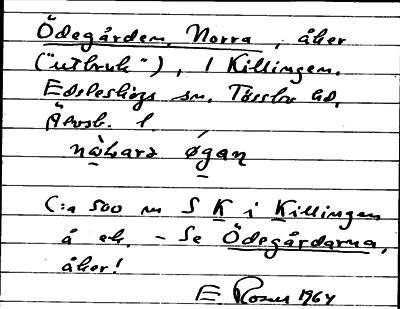 Ödegården, Norra, åker
("utbruk"), 1 Killingen.
Edsleskogs sn. Tössbo hd,
Älvsb. l.
nò̱ṟara ø̱gan
C:a 500 m S K i Killingen
å ek. - Se Ödegårdarna,
åker!
E. Rosell 1964